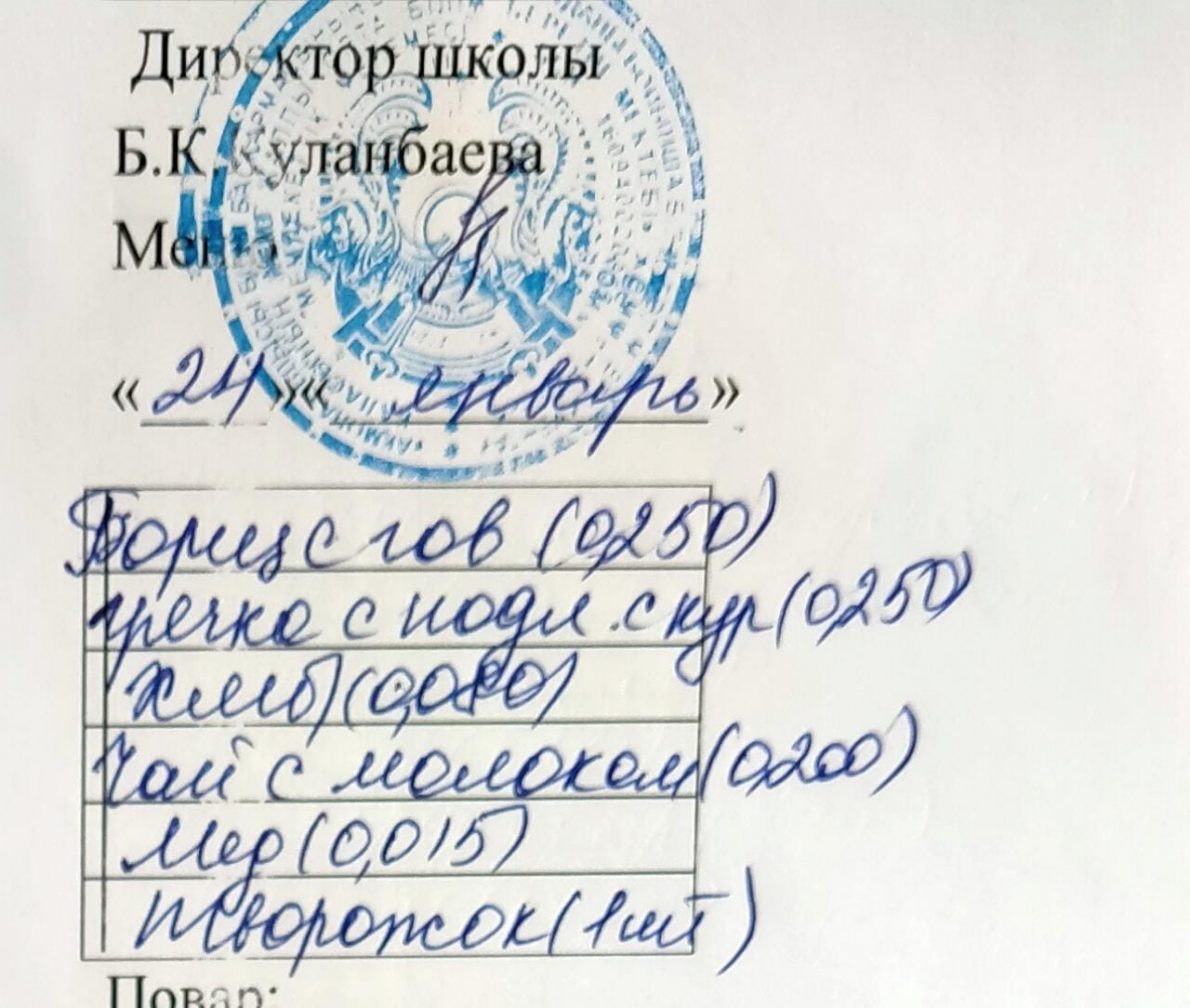 Директор школы
Б.К. Куланбаева
Меню
«24» «январь»
Борщ с гов (0,250)
гречка с подл. с кур (0,250)
Хлеб (0,080)
Чай с молоком (0,200)
Мед (0,015)
творожок (1 шт)
Повар: